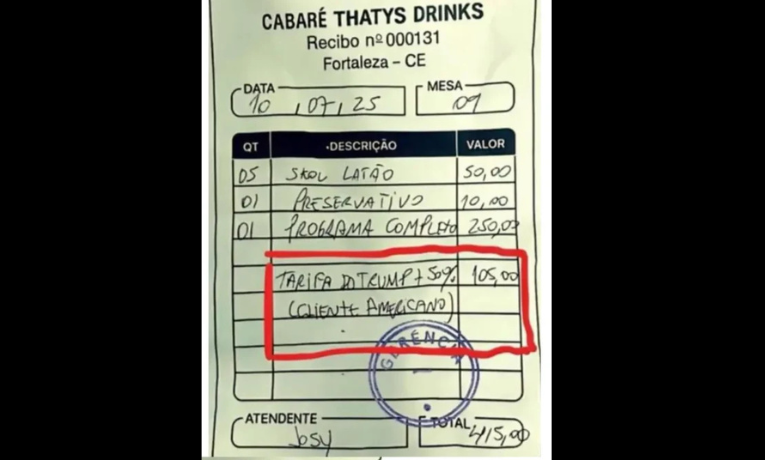 CABARÉ THATYS DRINKS
Recibo nº 000131
Fortaleza – CE
DATA MESA
10 , 07 , 25 09
QT DESCRIÇÃO VALOR
05 SKOL LATÃO 50,00
01 PRESERVATIVO 10,00
01 PROGRAMA COMPLETO 250,00
TARIFA DO TRUMP + 50% 105,00
(CLIENTE AMERICANO)
GERÊNCIA
ATENDENTE TOTAL
Josy 415,00